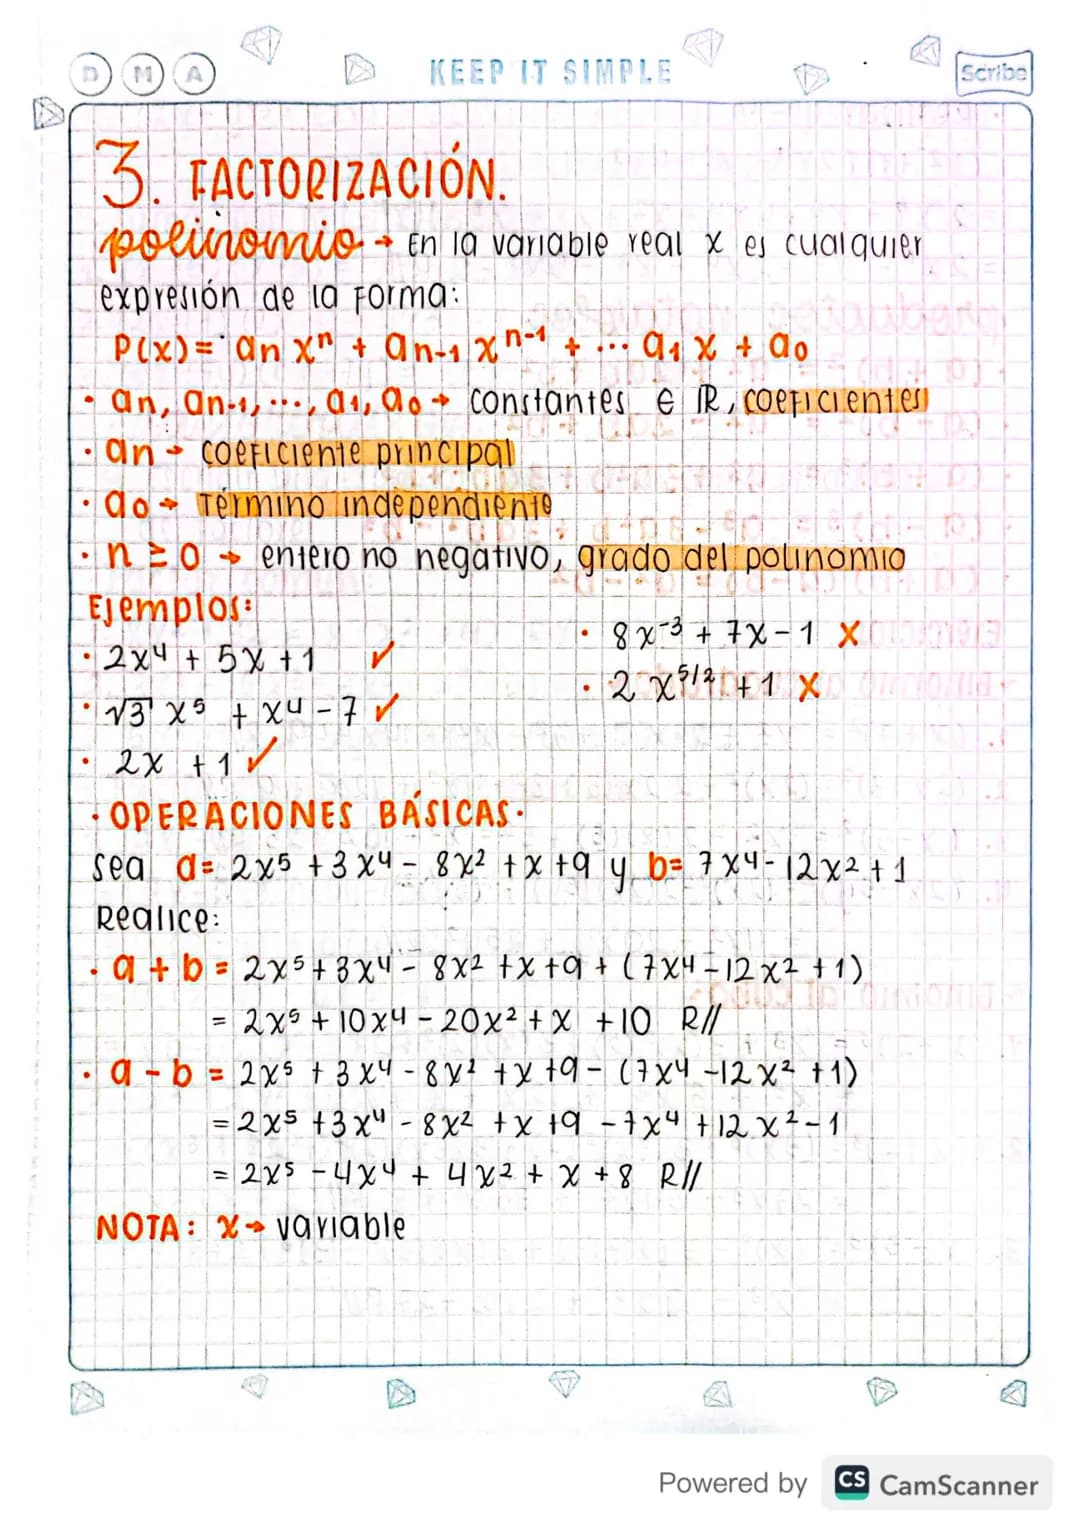 D M A KEEP IT SIMPLE Scribe
3. FACTORIZACIÓN.
polinomio → En la variable real x es cualquier
expresión de la forma:
P(x) = an xⁿ + an-1 xⁿ⁻¹ + ... a1 x + a0
· an, an-1, ..., a1, a0 → constantes ∈ ℝ, coeficientes
· an → coeficiente principal
· a0 → Término independiente
· n ≥ 0 → entero no negativo, grado del polinomio
Ejemplos:
· 2x⁴ + 5x + 1 ✓
· √3 x⁵ + x⁴ - 7 ✓
· 2x + 1 ✓
· 8x⁻³ + 7x - 1 X
· 2 x^5/2 + 1 X
· OPERACIONES BÁSICAS ·
sea a = 2x⁵ + 3x⁴ - 8x² + x + 9 y b = 7x⁴ - 12x² + 1
Realice:
· a + b = 2x⁵ + 3x⁴ - 8x² + x + 9 + (7x⁴ - 12x² + 1)
= 2x⁵ + 10x⁴ - 20x² + x + 10 R//
· a - b = 2x⁵ + 3x⁴ - 8x² + x + 9 - (7x⁴ - 12x² + 1)
= 2x⁵ + 3x⁴ - 8x² + x + 9 - 7x⁴ + 12x² - 1
= 2x⁵ - 4x⁴ + 4x² + x + 8 R//
NOTA: x → variable
Powered by CS CamScanner